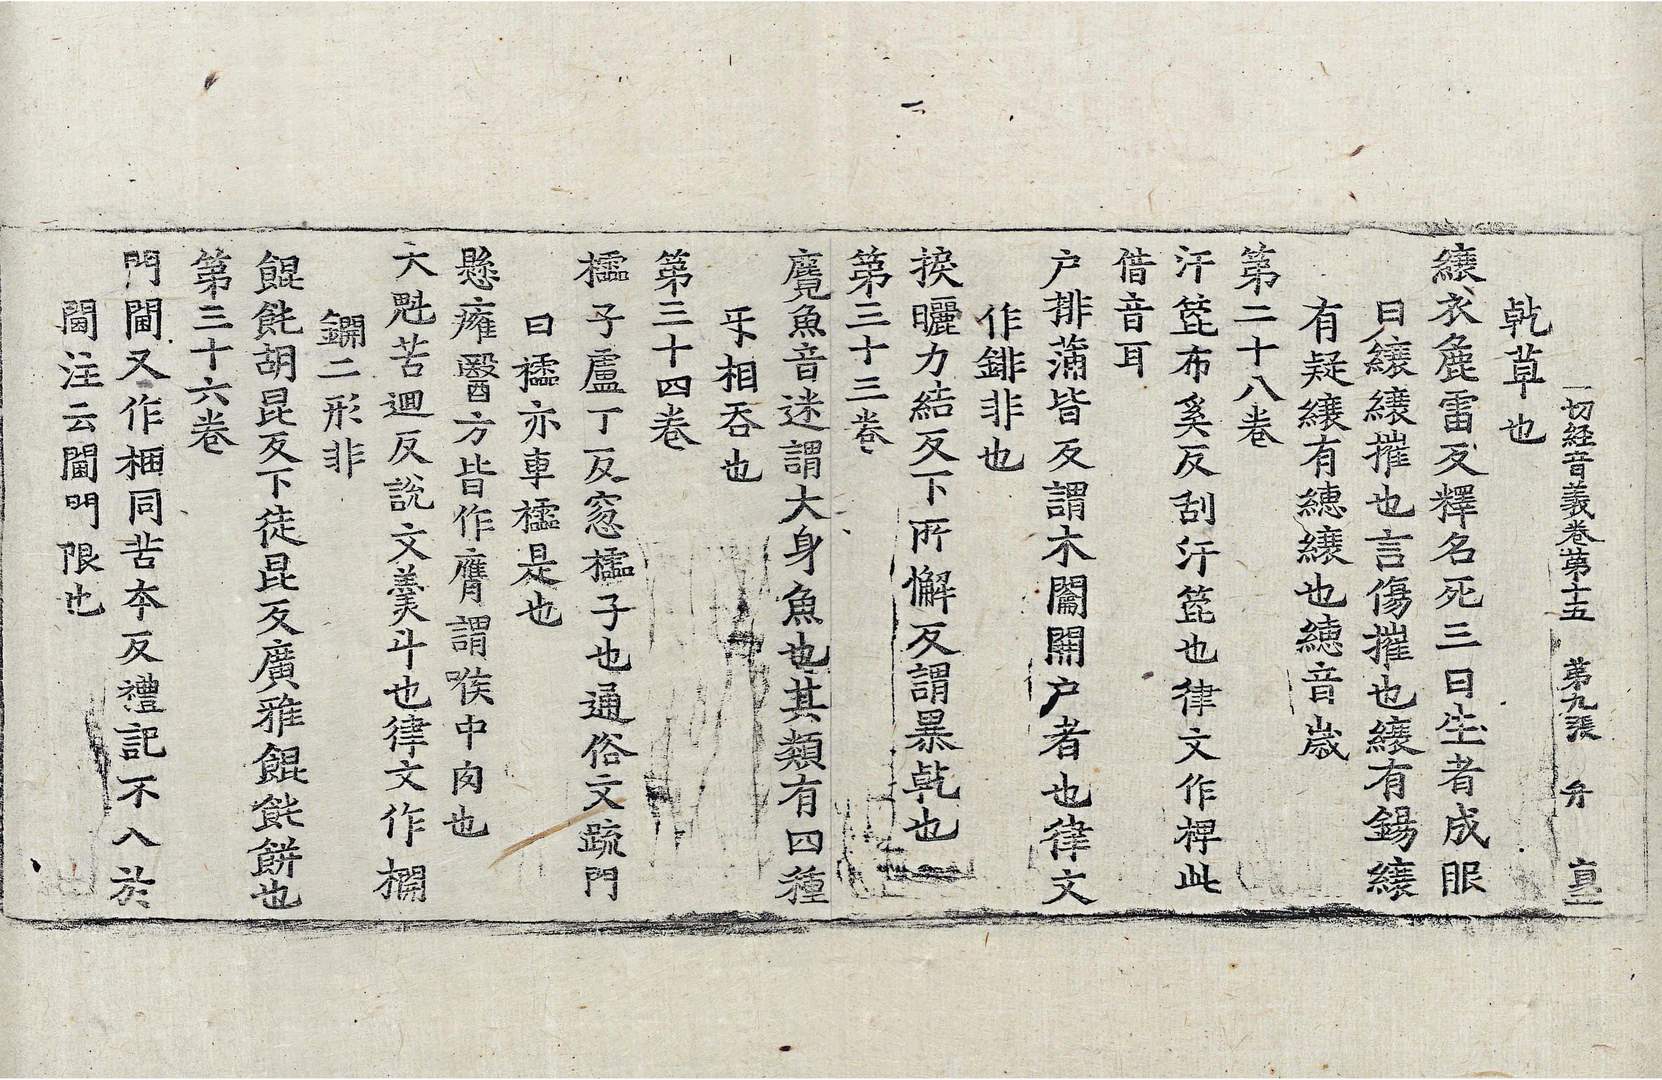 一切経音義卷苐十五　苐九張　弁　𡨴
乹草也
縗衣麁雷反釋名死三日生者成服
曰縗縗摧也言傷摧也縗有錫縗
有疑縗有繐縗也繐音歳
苐二十八卷
汗箆布奚反刮汗箆也律文作椑此
借音耳
户排蒲皆反謂木闔開户者也律文
作鋛非也
捩曬力結反下所懈反謂暴乹也
苐三十三卷
麂魚音迷謂大身魚也其類有四種
㸦相吞也
苐三十四卷
櫺子盧丁反窓櫺子也通俗文疏門
曰櫺亦車櫺是也
懸癰醫方皆作膺謂喉中肉也
大魁苦迴反説文羹斗也律文作欄
钄二形非
餛飩胡昆反下徒昆反廣雅餛飩餅也
苐三十六卷
門閫又作梱同苦本反禮記不入於
閫注云閫門限也